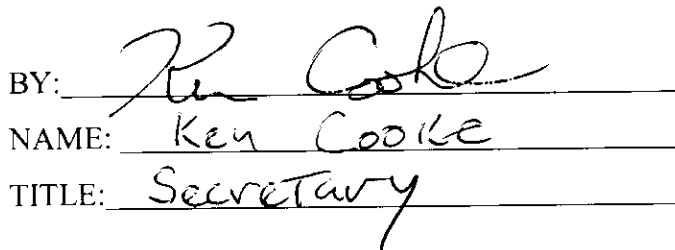 BY: Ken Cooke
NAME: Ken Cooke
TITLE: Secretary